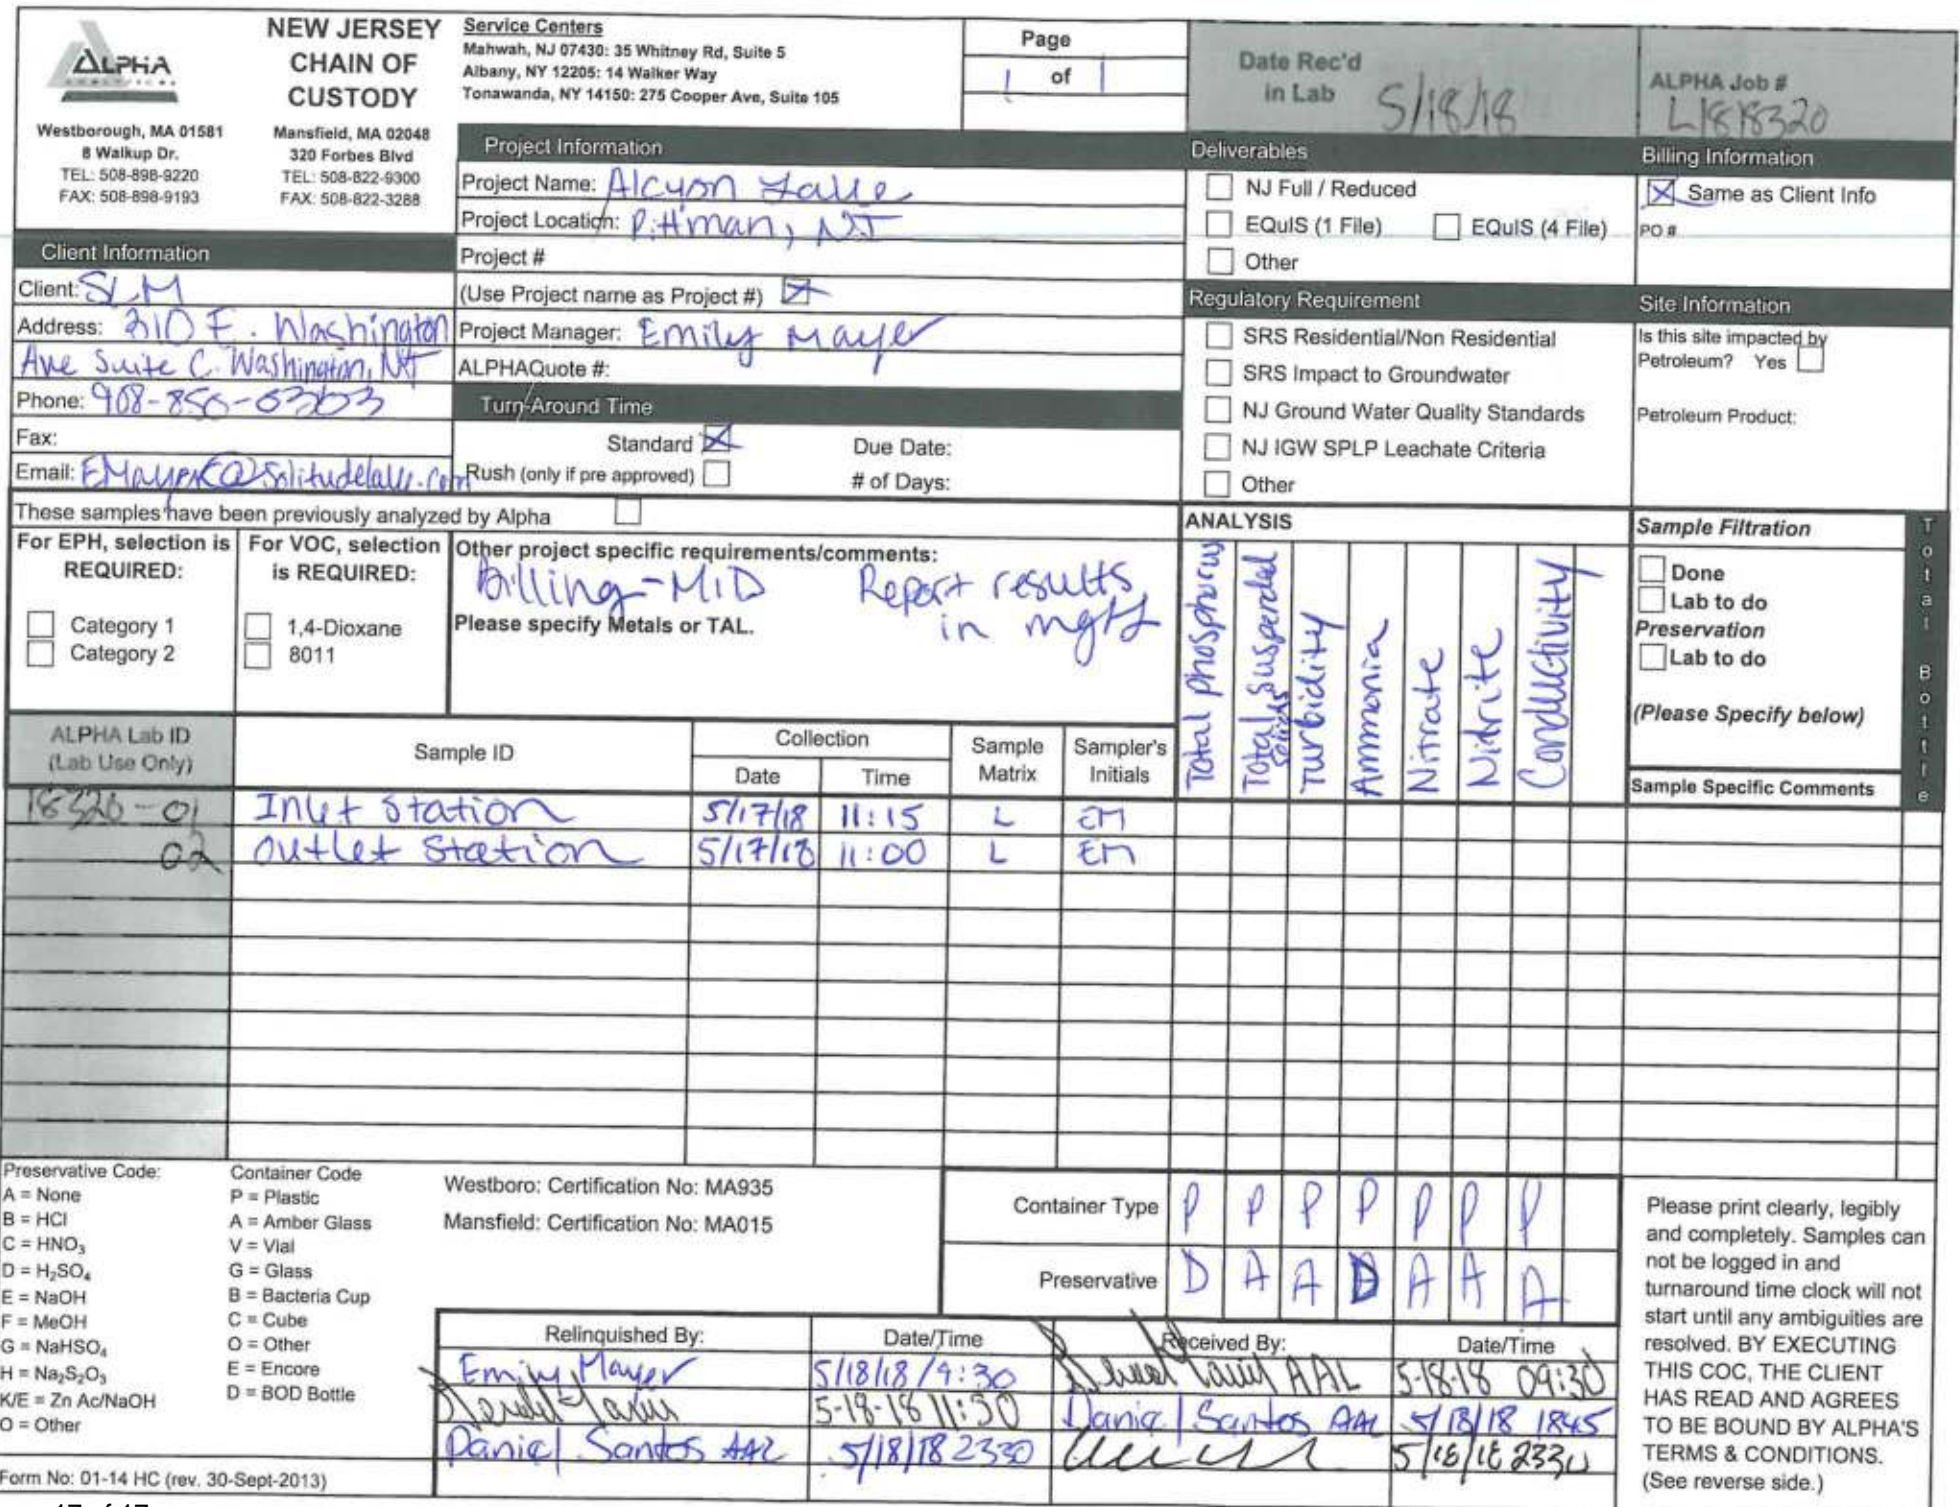 ALPHA
ANALYTICAL
Westborough, MA 01581
8 Walkup Dr.
TEL: 508-898-9220
FAX: 508-898-9193
NEW JERSEY
CHAIN OF
CUSTODY
Mansfield, MA 02048
320 Forbes Blvd
TEL: 508-822-9300
FAX: 508-822-3288
Service Centers
Mahwah, NJ 07430: 35 Whitney Rd, Suite 5
Albany, NY 12205: 14 Walker Way
Tonawanda, NY 14150: 275 Cooper Ave, Suite 105
Page
1 of 1
Date Rec'd
in Lab 5/18/18
ALPHA Job #
L1818320
Client Information
Client: SLM
Address: 310 E. Washington
Ave Suite C. Washington, NJ
Phone: 908-850-0303
Fax:
Email: EMayer@Solitudelake.com
Project Information
Project Name: Alcyon Lake
Project Location: Pittman, NJ
Project #
(Use Project name as Project #)
Project Manager: Emily Mayer
ALPHAQuote #:
Turn-Around Time
Standard Due Date:
Rush (only if pre approved) # of Days:
Deliverables
NJ Full / Reduced
EQuIS (1 File) EQuIS (4 File)
Other
Regulatory Requirement
SRS Residential/Non Residential
SRS Impact to Groundwater
NJ Ground Water Quality Standards
NJ IGW SPLP Leachate Criteria
Other
Billing Information
Same as Client Info
PO #
Site Information
Is this site impacted by
Petroleum? Yes
Petroleum Product:
These samples have been previously analyzed by Alpha
For EPH, selection is
REQUIRED:
Category 1
Category 2
For VOC, selection
is REQUIRED:
1,4-Dioxane
8011
Other project specific requirements/comments:
Billing-MID Report results
in mg/L
Please specify Metals or TAL.
ANALYSIS
Total Phosphorus
Total Suspended
Solids
Turbidity
Ammonia
Nitrate
Nidrite
Conductivity
Sample Filtration
Done
Lab to do
Preservation
Lab to do
(Please Specify below)
Sample Specific Comments
Total Bottle
ALPHA Lab ID
(Lab Use Only)
Sample ID
Collection
Date Time
Sample
Matrix
Sampler's
Initials
18320-01 Inlet Station 5/17/18 11:15 L EM
02 Outlet Station 5/17/18 11:00 L EM
Preservative Code:
A = None
B = HCl
C = HNO3
D = H2SO4
E = NaOH
F = MeOH
G = NaHSO4
H = Na2S2O3
K/E = Zn Ac/NaOH
O = Other
Container Code
P = Plastic
A = Amber Glass
V = Vial
G = Glass
B = Bacteria Cup
C = Cube
O = Other
E = Encore
D = BOD Bottle
Westboro: Certification No: MA935
Mansfield: Certification No: MA015
Container Type P P P P P P P
Preservative D A A D A A A
Relinquished By: Date/Time Received By: Date/Time
Emily Mayer 5/18/18 / 9:30 AAL 5-18-18 09:30
5-18-18 11:30 Daniel Santos AAL 5/18/18 1845
Daniel Santos AAL 5/18/18 2330 5/18/18 2330
Please print clearly, legibly
and completely. Samples can
not be logged in and
turnaround time clock will not
start until any ambiguities are
resolved. BY EXECUTING
THIS COC, THE CLIENT
HAS READ AND AGREES
TO BE BOUND BY ALPHA'S
TERMS & CONDITIONS.
(See reverse side.)
Form No: 01-14 HC (rev. 30-Sept-2013)